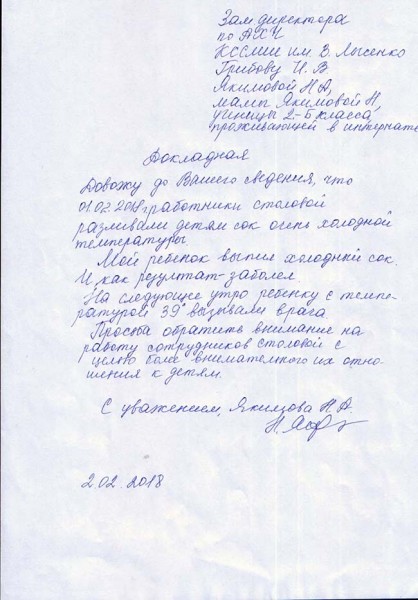 Зам директора
по АХЧ
КССМШ им. В. Лысенко
Грибову И. В
Якимовой Н А,
мамы Якимовой Н,
уеницы 2-Б класса,
проживающей в интернате
Докладная
Довожу до Вашего сведения, что
01.02.2018 работники столовой
разливали детям сок очень холодной
температуры.
Мой ребенок выпил холодный сок.
И как результат - заболел.
На следующее утро ребенку с темпе-
ратурой 39° вызывали врача.
Просьба обратить внимание на
работу сотрудников столовой с
целью более внимательного их отно-
шения к детям.
С уважением, Якимова Н. А.
2.02.2018